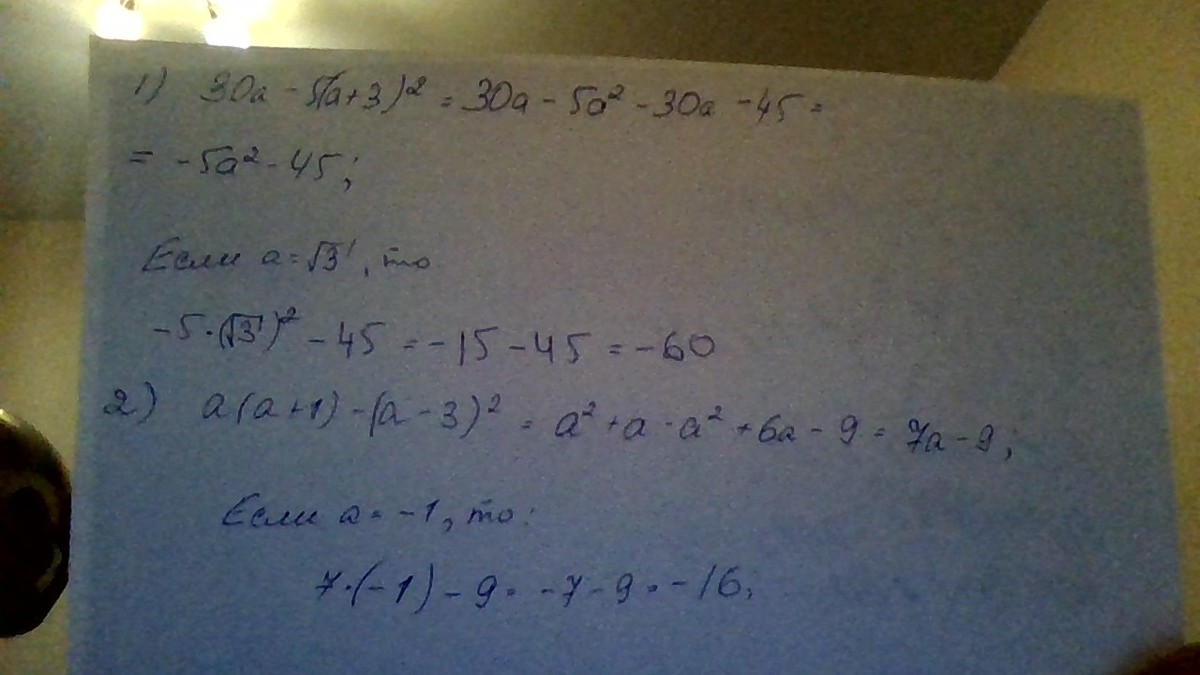 1) 30a - 5(a+3)² = 30a - 5a² - 30a - 45 =
= -5a² - 45;
Если a = √3, то
-5·(√3)² - 45 = -15 - 45 = -60
2) a(a+1) - (a-3)² = a² + a - a² + 6a - 9 = 7a - 9;
Если a = -1, то:
7·(-1) - 9 = -7 - 9 = -16;